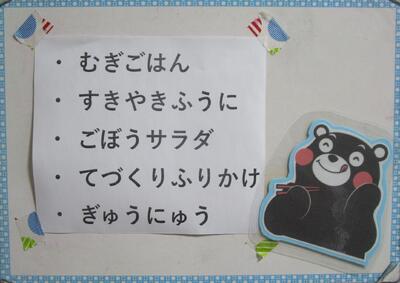 ・ むぎごはん
・ すきやきふうに
・ ごぼうサラダ
・ てづくりふりかけ
・ ぎゅうにゅう